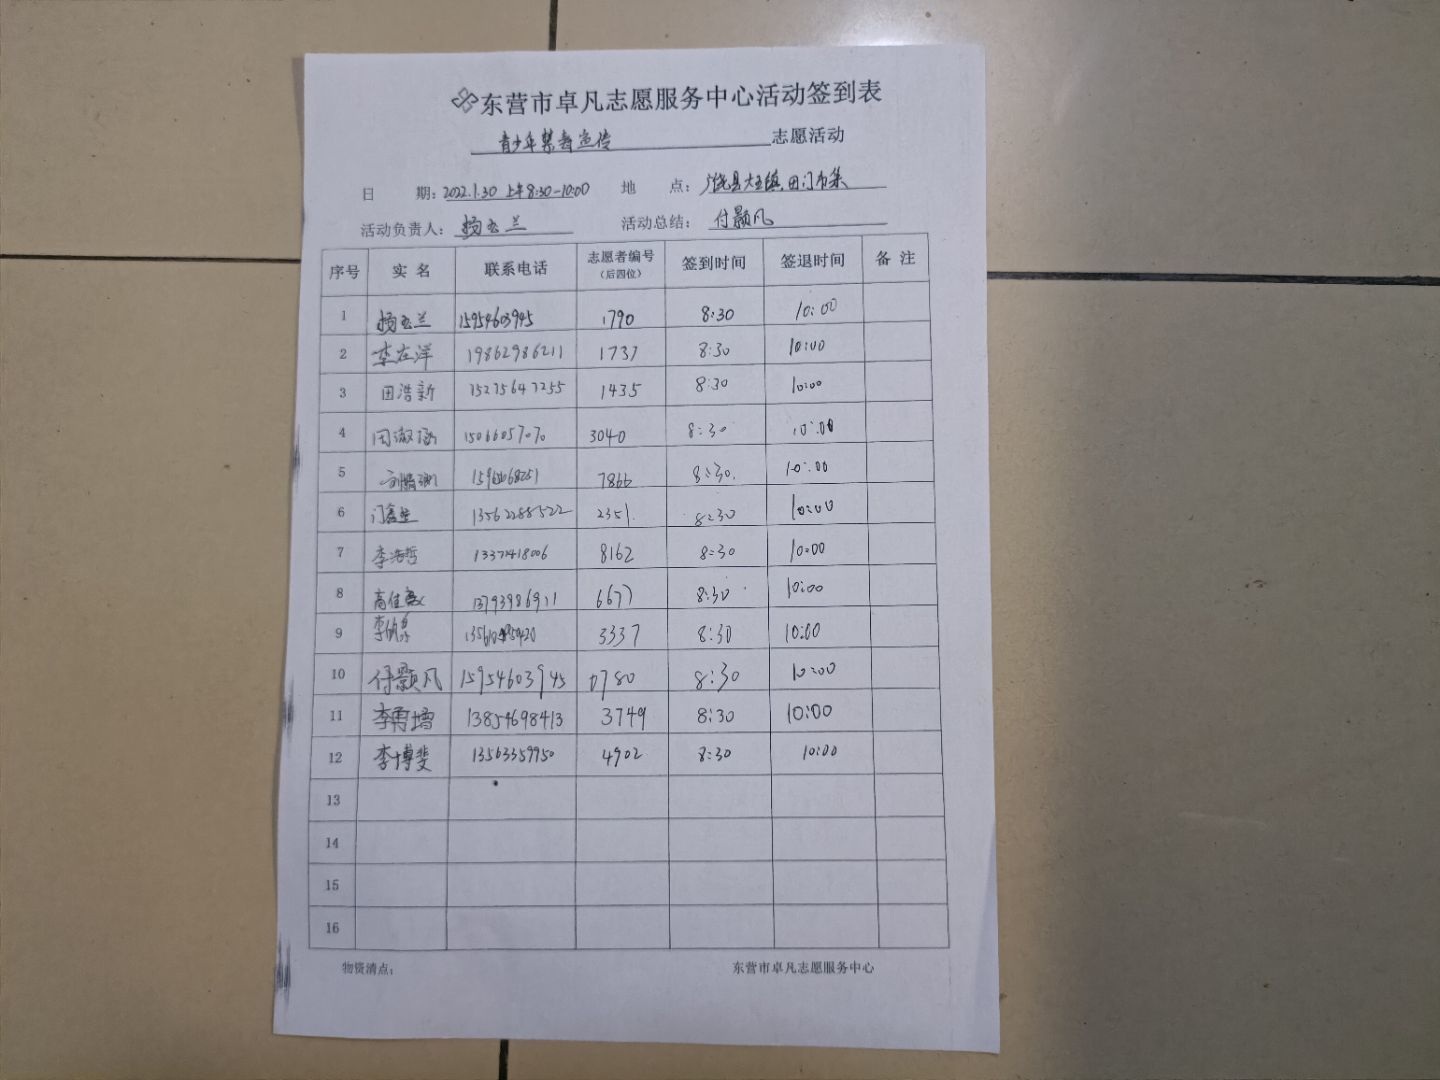 东营市卓凡志愿服务中心活动签到表
青少年禁毒宣传 志愿活动
日 期：2022.1.30 上午8:30-10:00 地 点：广饶县大王镇田门市集
活动负责人：杨玉兰 活动总结：付颢凡
序号 实名 联系电话 志愿者编号（后四位） 签到时间 签退时间 备注
1 杨玉兰 15954603945 1790 8:30 10:00
2 李在洋 19862986211 1737 8:30 10:00
3 田浩新 15275647255 1435 8:30 10:00
4 田淑 15066057070 3040 8:30 10:00
5 7866 8:30. 10:00
6 门鑫 13562288522 2351. 8:30 10:00
7 李浩哲 13371418006 8162 8:30 10:00
8 高佳 13793986911 6677 8:30 10:00
9 李 3337 8:30 10:00
10 付颢凡 15954603945 0780 8:30 10:00
11 李 13854698413 3749 8:30 10:00
12 李博斐 13563359950 4902 8:30 10:00
13
14
15
16
物资清点： 东营市卓凡志愿服务中心